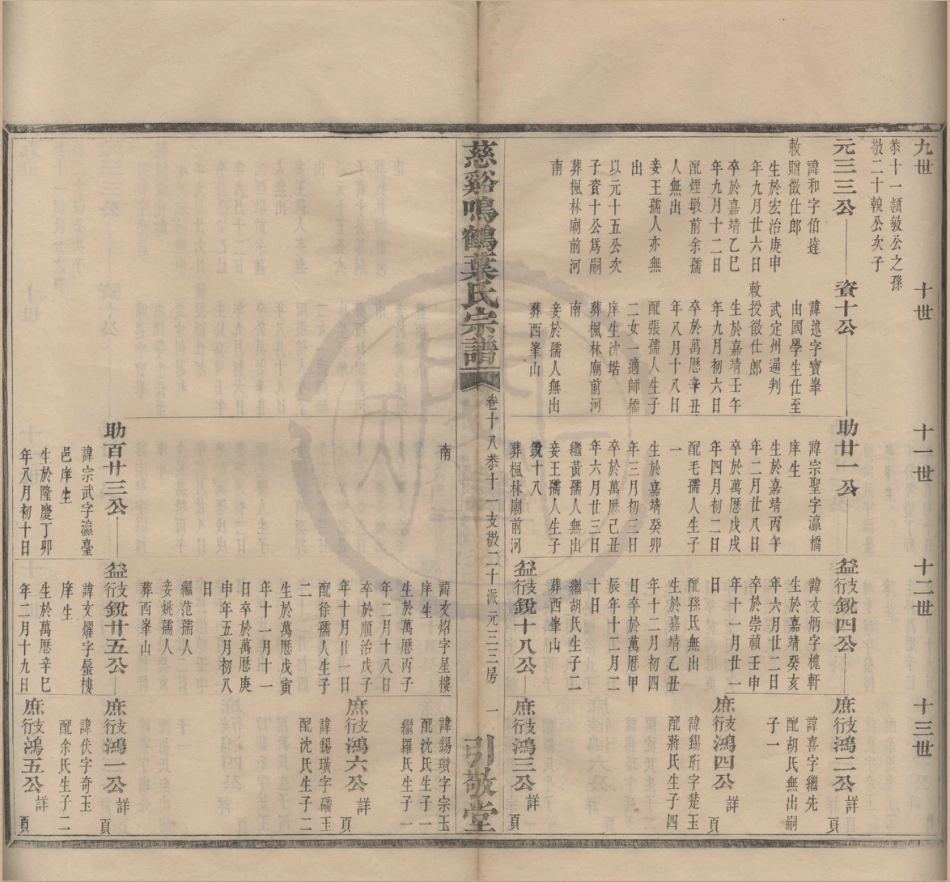 九世
十世
十一世
十二世
十三世
恭十一頴敏公之孫
敬二十輗公次子
元三三公
諱和字伯達
敕贈徵仕郎
生於宏治庚申
年九月廿六日
卒於嘉靖乙巳
年九月十二日
配煙墩前余孺
人無出
妾王孺人亦無
出
以元十五公次
子賚十公爲嗣
葬楓林廟前河
南
賚十公
諱進字寶峯
由國學生仕至
武定州通判
敕授徵仕郎
生於嘉靖壬午
年九月初六日
卒於萬曆辛丑
年八月十八日
配張孺人生子
二女一適師橋
庠生沈堦
葬楓林廟前河
南
妾於孺人無出
葬西峯山
助廿一公
諱宗聖字瀛橋
庠生
生於嘉靖丙午
年二月廿八日
卒於萬曆戊戌
年四月初二日
配毛孺人生子
一
生於嘉靖癸卯
年三月初三日
卒於萬曆己丑
年六月廿三日
繼黃孺人無出
妾王孺人生子
銳十八
葬楓林廟前河
益支行銳四公
諱文炳字槐軒
生於嘉靖癸亥
年六月廿二日
卒於崇禎壬申
年十一月廿一
日
配孫氏無出
生於嘉靖乙丑
年十二月初四
日卒於萬曆甲
辰年十二月二
十日
繼胡氏生子二
葬西峯山
益支行銳十八公
庶支行鴻二公詳頁
諱喜字繼先
配胡氏無出嗣
子一
庶支行鴻四公詳頁
諱錫珩字楚玉
配蔣氏生子四
庶支行鴻三公詳頁
慈谿鳴鶴葉氏宗譜
卷十八恭十一支敬二十派元三三房
一
引敬堂
南
助百廿三公
諱宗武字瀛臺
邑庠生
生於隆慶丁卯
年八月初十日
諱文炤字星樓
庠生
生於萬曆丙子
年二月十八日
卒於順治戊子
年十月廿一日
配徐孺人生子
二
生於萬曆戊寅
年十一月十一
日卒於萬曆庚
申年五月初八
日
繼范孺人
妾姚孺人
葬西峯山
益支行銳廿五公
諱文燿字辰樓
庠生
生於萬曆辛巳
年二月十九日
諱錫瓚字宗玉
配沈氏生子一
繼羅氏生子一
庶支行鴻六公詳頁
諱錫璜字磻玉
配沈氏生子二
庶支行鴻一公詳頁
諱佚字奇玉
配余氏生子二
庶支行鴻五公詳頁